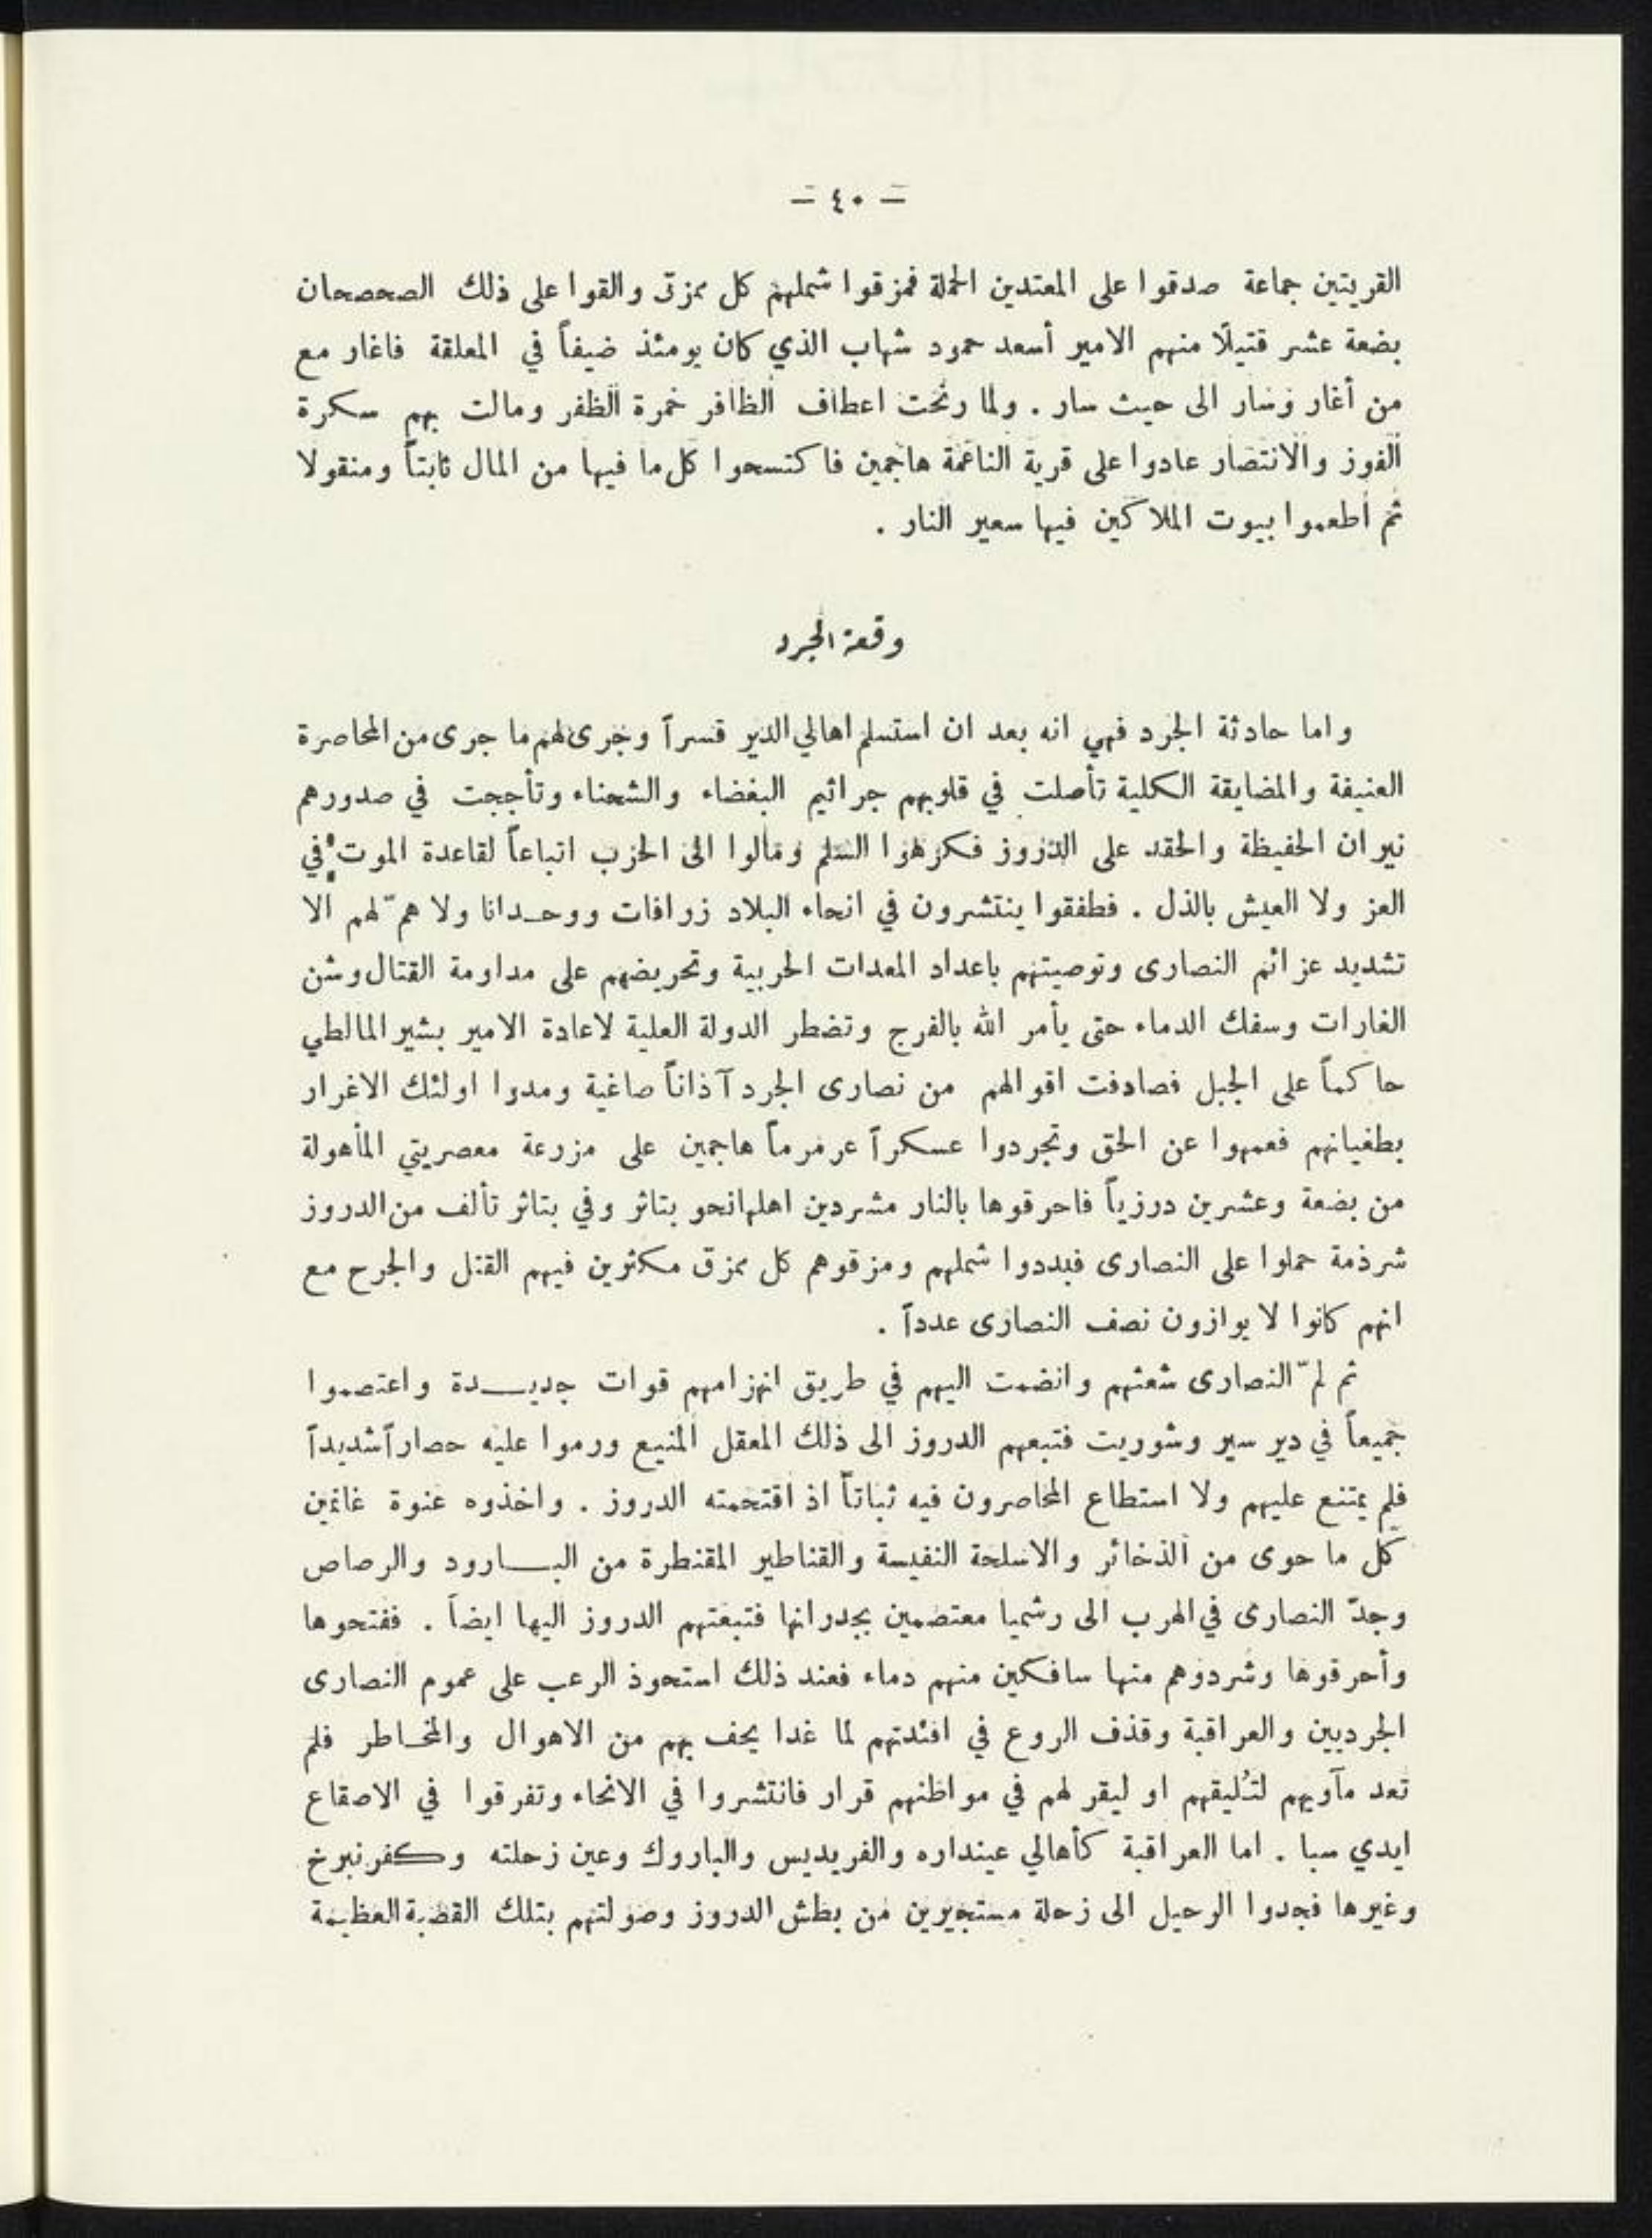 — ٤٠ —
القريتين جماعة صدقوا على المعتدين الحملة فمزقوا شملهم كل ممزق والقوا على ذلك الصحصحان
بضعة عشر قتيلًا منهم الامير أسعد حمود شهاب الذي كان يومئذ ضيفاً في المعلقة فاغار مع
من أغار وسار الى حيث سار . ولما رنحت اعطاف الظافر خمرة الظفر ومالت بهم سكرة
الفوز والانتصار عادوا على قرية الناعمة هاجمين فاكتسحوا كل ما فيها من المال ثابتاً ومنقولا
ثم أطعموا بيوت الملاكين فيها سعير النار .
وقعة الجرد
واما حادثة الجرد فهي انه بعد ان استسلم اهالي الدير قسراً وجرى لهم ما جرى من المحاصرة
العنيفة والمضايقة الكلية تأصلت في قلوبهم جراثيم البغضاء والشحناء وتأججت في صدورهم
نيران الحفيظة والحقد على الدروز فكرهوا السلم ومالوا الى الحزب اتباعاً لقاعدة الموت في
العز ولا العيش بالذل . فطفقوا ينتشرون في انحاء البلاد زرافات ووحدانا ولا همّ لهم الا
تشديد عزائم النصارى وتوصيتهم باعداد المعدات الحربية وتحريضهم على مداومة القتال وشن
الغارات وسفك الدماء حتى يأمر الله بالفرج وتضطر الدولة العلية لاعادة الامير بشير المالطي
حاكماً على الجبل فصادفت اقوالهم من نصارى الجرد آذاناً صاغية ومدوا اولئك الاغرار
بطغيانهم فعمهوا عن الحق وتجردوا عسكراً عرمرماً هاجمين على مزرعة معصريتي المأهولة
من بضعة وعشرين درزياً فاحرقوها بالنار مشردين اهلها نحو بتاثر وفي بتاثر تألف من الدروز
شرذمة حملوا على النصارى فبددوا شملهم ومزقوهم كل ممزق مكثرين فيهم القتل والجرح مع
انهم كانوا لا يوازون نصف النصارى عدداً .
ثم لمّ النصارى شعثهم وانضمت اليهم في طريق انهزامهم قوات جديدة واعتصموا
جميعاً في دير سير وشوريت فتبعهم الدروز الى ذلك المعقل المنيع ورموا عليه حصاراً شديداً
فلم يمتنع عليهم ولا استطاع المحاصرون فيه ثباتاً اذ اقتحمته الدروز . واخذوه عنوة غانمين
كل ما حوى من الذخائر والاسلحة النفيسة والقناطير المقنطرة من البارود والرصاص
وجدّ النصارى في الهرب الى رشميا معتصمين بجدرانها فتبعتهم الدروز اليها ايضاً . ففتحوها
وأحرقوها وشردوهم منها سافكين منهم دماء فعند ذلك استحوذ الرعب على عموم النصارى
الجرديين والعراقبة وقذف الروع في افئدتهم لما غدا يحف بهم من الاهوال والمخاطر فلم
تعد مآويهم لتُليقهم او ليقر لهم في مواطنهم قرار فانتشروا في الانحاء وتفرقوا في الاصقاع
ايدي سبا . اما العراقبة كأهالي عينداره والفريديس والباروك وعين زحلته وكفرنبرخ
وغيرها فجدوا الرحيل الى زحلة مستجيرين من بطش الدروز وصولتهم بتلك القصبة العظيمة